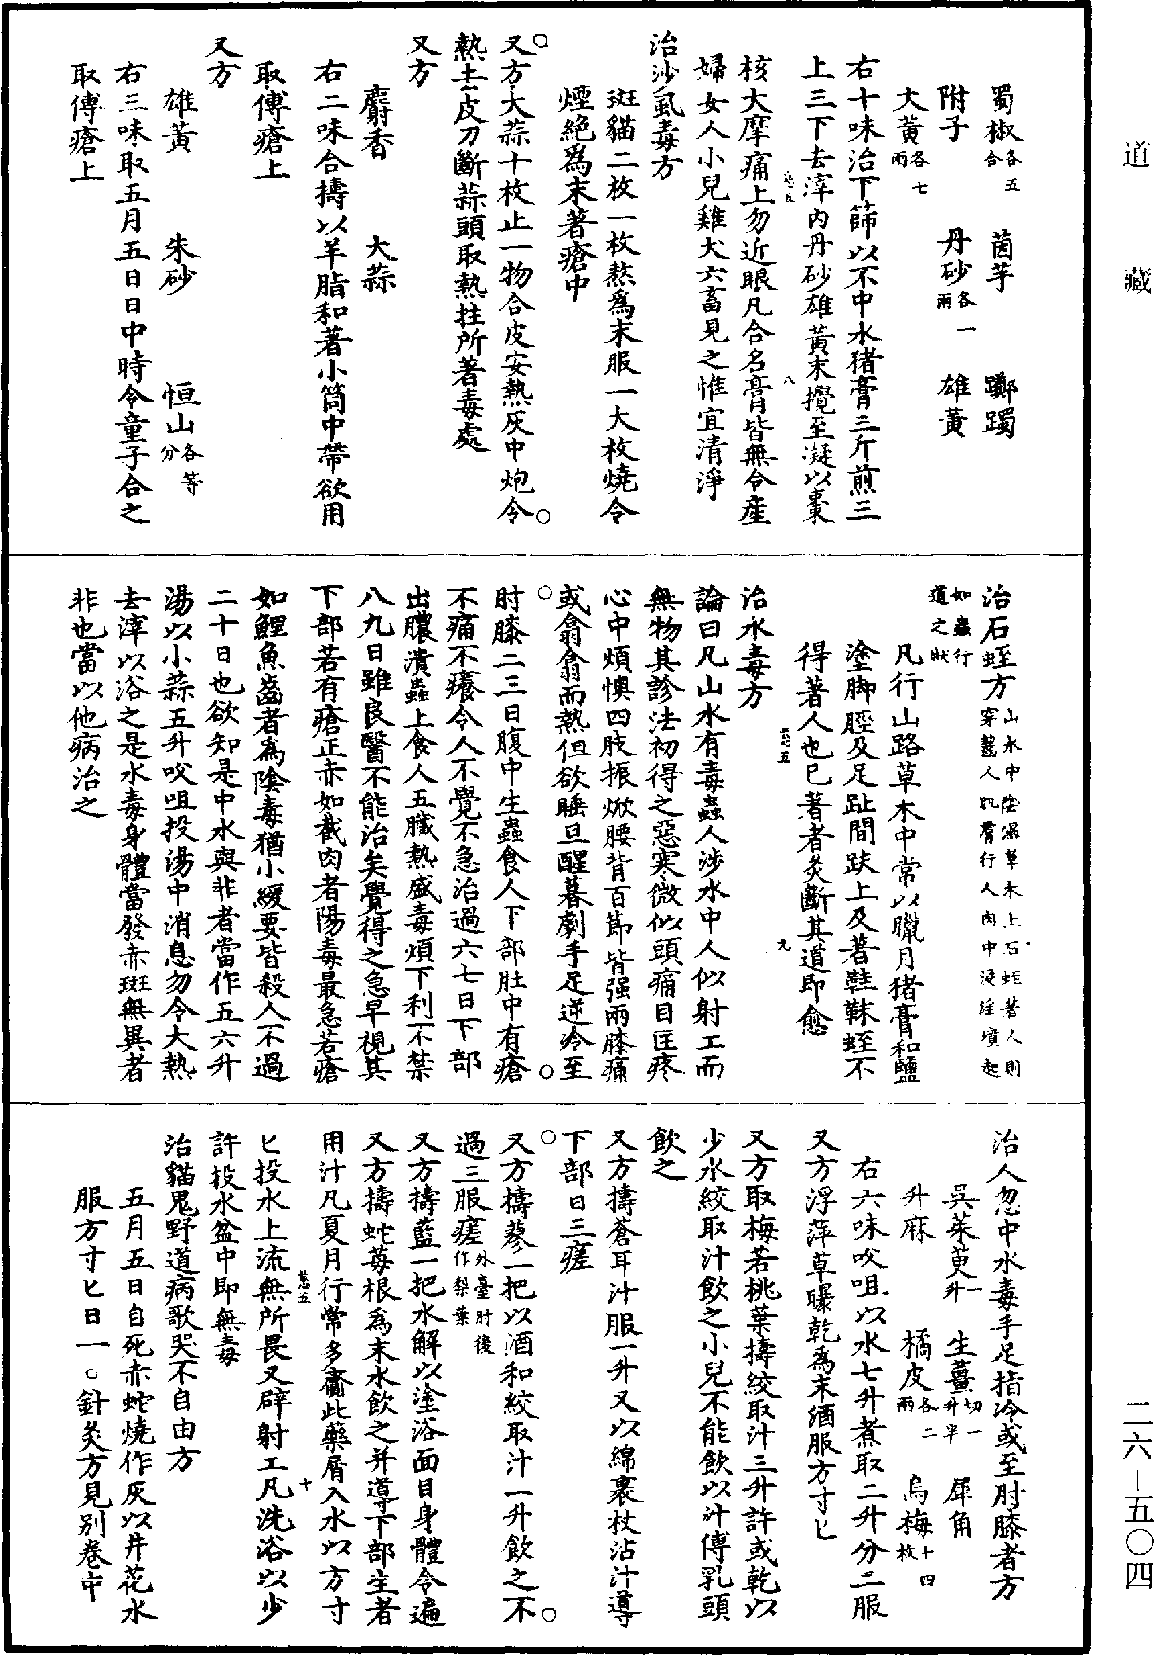 道藏
蜀椒各五合　茵芋　躑躅
附子　丹砂各一兩　雄黃
大黃各七兩
右十味治下篩以不中水猪膏三斤煎三
上三下去滓內丹砂雄黃末攪至凝以棗
核大摩痛上勿近眼凡合名膏皆無令產
婦女人小兒雞犬六畜見之惟宜清淨
治沙虱毒方
斑貓二枚一枚熬為末服一大枚燒令
煙絕為末著瘡中
又方大蒜十枚止一物合皮安熱灰中炮令
熱去皮刀斷蒜頭取熱拄所著毒處
又方
麝香　大蒜
右二味合擣以羊脂和著小筒中帶欲用
取傅瘡上
又方
雄黃　朱砂　恒山各等分
右三味取五月五日日中時令童子合之
取傅瘡上
治石蛭方山水中陰濕草木上石蛭著人則
穿齧人肌膚行人肉中浸淫墳起
如蟲行
道之狀
凡行山路草木中常以臘月猪膏和鹽
塗脚脛及足趾間趺上及著鞋韈蛭不
得著人也已著者灸斷其道即愈
治水毒方
論曰凡山水有毒蟲人涉水中人似射工而
無物其診法初得之惡寒微似頭痛目匡疼
心中煩懊四肢振焮腰背百節皆强兩膝痛
或翕翕而熱但欲睡旦醒暮劇手足逆冷至
肘膝二三日腹中生蟲食人下部肚中有瘡
不痛不癢令人不覺不急治過六七日下部
出膿潰蟲上食人五臟熱盛毒煩下利不禁
八九日雖良醫不能治矣覺得之急早視其
下部若有瘡正赤如截肉者陽毒最急若瘡
如鯉魚齒者為陰毒猶小緩要皆殺人不過
二十日也欲知是中水與非者當作五六升
湯以小蒜五升㕮咀投湯中消息勿令大熱
去滓以浴之是水毒身體當發赤斑無異者
非也當以他病治之
治人忽中水毒手足指冷或至肘膝者方
吳茱萸一升　生薑切一升半　犀角
升麻　橘皮各二兩　烏梅十四枚
右六味㕮咀以水七升煮取二升分二服
又方浮萍草曝乾為末酒服方寸匕
又方取梅若桃葉擣絞取汁三升許或乾以
少水絞取汁飲之小兒不能飲以汁傅乳頭
飲之
又方擣蒼耳汁服一升又以綿裹杖沾汁導
下部日三瘥
又方擣蓼一把以酒和絞取汁一升飲之不
過三服瘥外臺肘後作梨葉
又方擣藍一把水解以塗浴面目身體令遍
又方擣蛇莓根為末水飲之并導下部生者
用汁凡夏月行常多齎此藥屑入水以方寸
匕投水上流無所畏又辟射工凡洗浴以少
許投水盆中即無毒
治貓鬼野道病歌哭不自由方
五月五日自死赤蛇燒作灰以井花水
服方寸匕日一○針灸方見別卷中
二六—五〇四